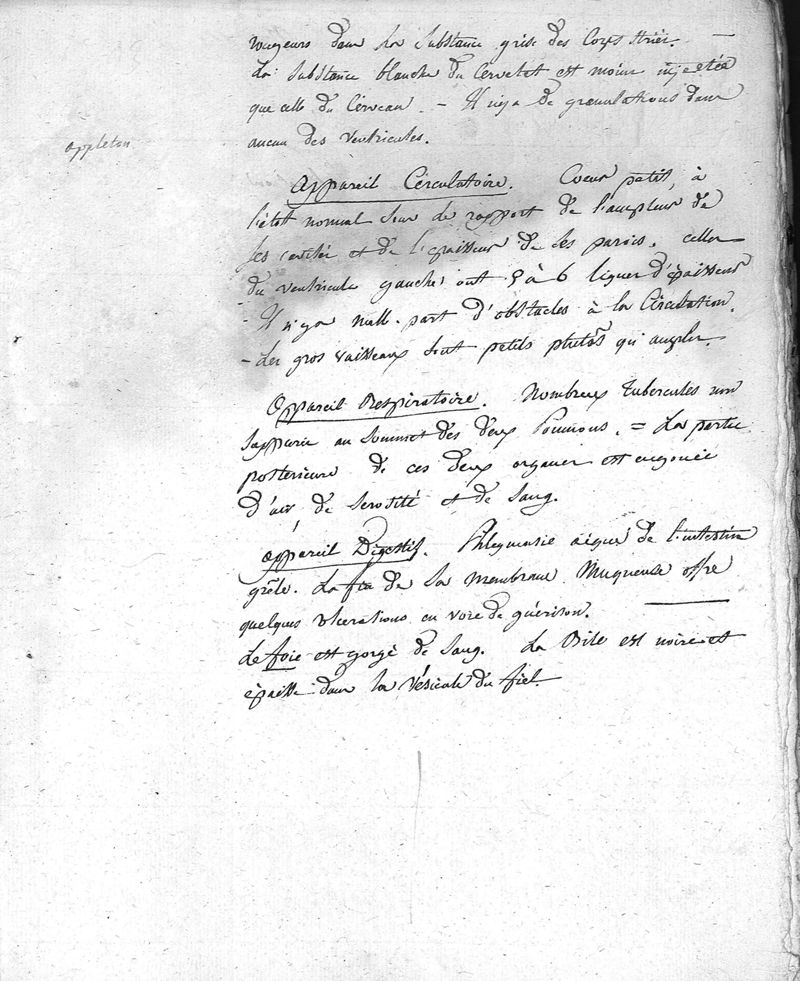 rougeurs dans la substance grise des Corps striés. —
La substance blanche du Cervelet est moins injectée
que celle du Cerveau. — Il n'y a de granulations dans
aucun des ventricules.
appleton
Appareil Circulatoire. Coeur petit, à
l'état normal sous de rapport de l'ampleur de
ses cavités et de l'épaisseur de ses parois. celles
du ventricule gauche ont 5 à 6 lignes d'épaisseur
- Il n'y a nulle part d'obstacles à la Circulation.
- Les gros vaisseaux sont petits plutôt qu'amples.
Appareil Respiratoire. Nombreux tubercules non
suppurés au sommet des deux Poumons. = La partie
postérieure de ces deux organes est engouée
d'air, de serosité et de sang.
appareil Digestif. Phlegmasie aigue de l'intestin
grêle. La fin de la membrane Muqueuse offre
quelques ulcerations en voie de guérison. —
Le foie est gorgé de sang. La Bile est noire et
épaisse dans la vésicule du fiel.